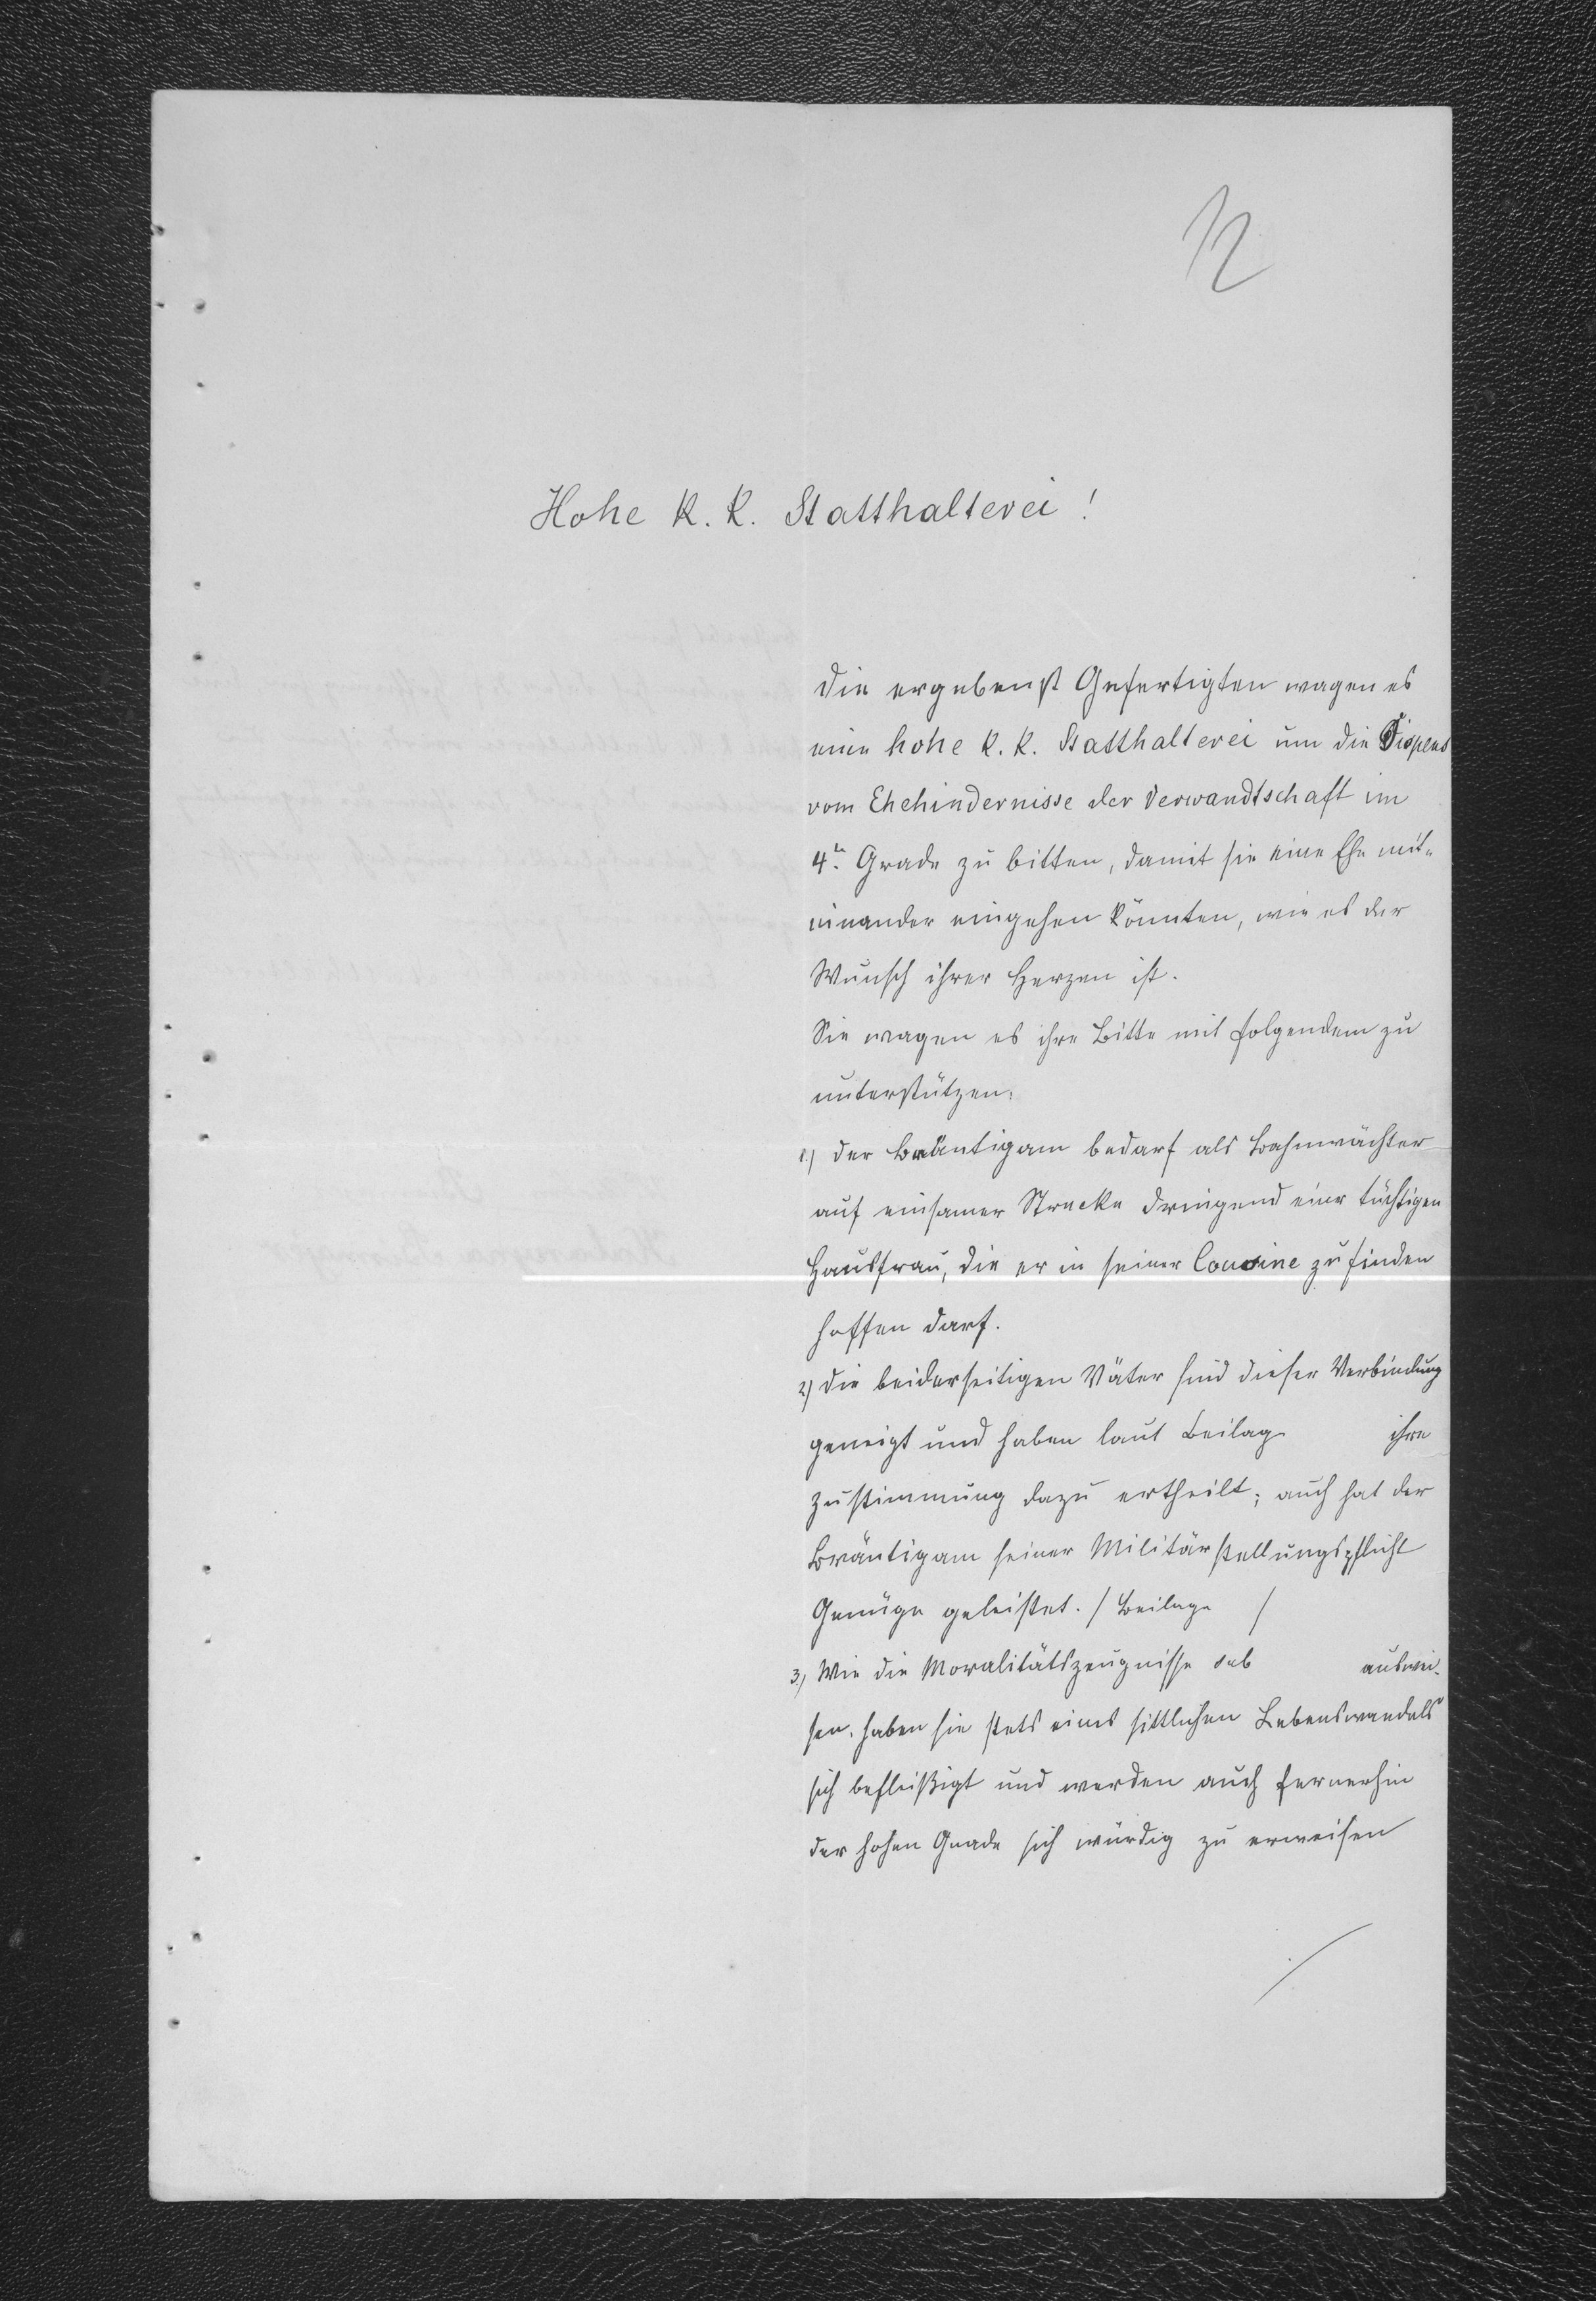 12
Hohe k. k. Statthalterei!
Die ergebenst Gefertigten wagen es
eine hohe k. k. Statthalterei um die Dispens
vom Ehehindernisse der Verwandtschaft im
4tn. Grade zu bitten, damit sie eine Ehe mit-
einander eingehen könnten, wie es der
Wunsch ihrer Herzen ist.
Sie wagen es ihre Bitte mit folgendem zu
unterstützen:
1.) der Bräutigam bedarf als Bahnwächter
auf einsamer Strecke dringend einer tüchtigen
Hausfrau, die er in seiner Cousine zu finden
hoffen darf.
2) die beiderseitigen Väter sind dieser Verbindung
geneigt und haben laut Beilage ihre
Zustimmung dazu ertheilt; auch hat der
Bräutigam seiner Militärstellungspflicht
Genüge geleistet. / Beilage /
3.) Wie die Moralitätszeugnisse sub auswei-
sen, haben sie stets eines sittlichen Lebenswandels
sich befleißigt und werden auch fernerhin
der hohen Gnade sich würdig zu erweisen